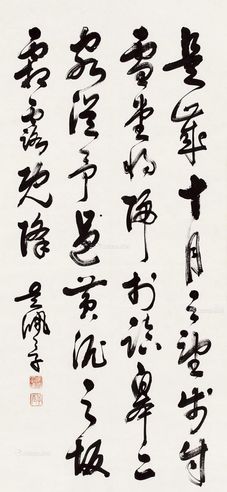 是歲十月之望步自
雪堂將歸於臨皋二
客從予過黃泥之坂
霜露既降